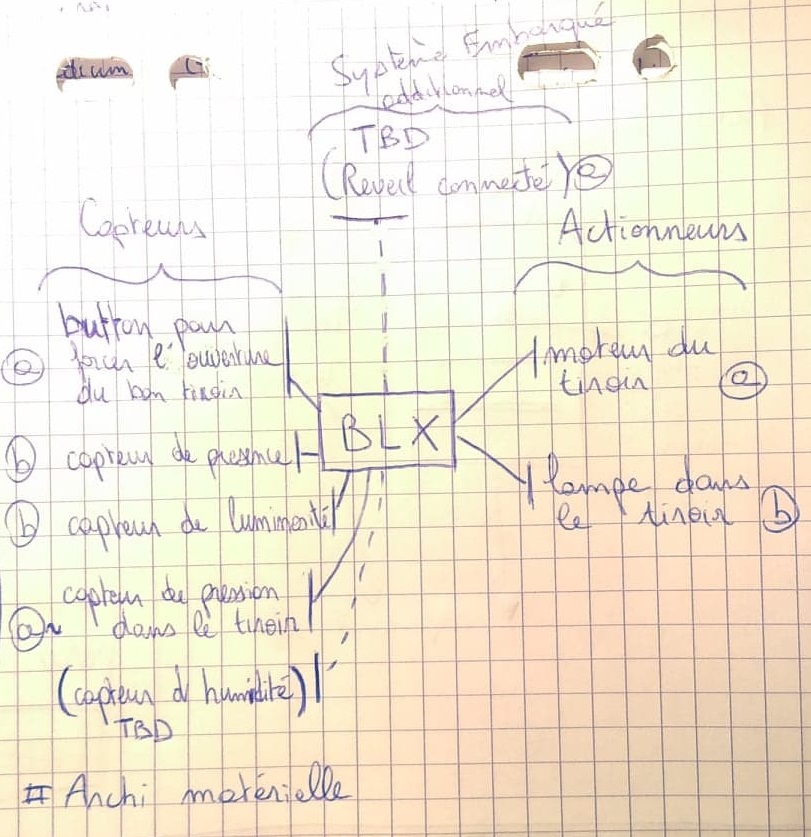 Système Embarqué
additionnel
TBD
(Reveil connecté) a
Capteurs
Actionneurs
button pour
a forcer l'ouverture
du bon tiroir
b capteur de presence
b capteur de luminosité
capteur de pression
a dans le tiroir
(capteur d'humidité)
TBD
BLX
moteur du
tiroir a
lampe dans
le tiroir b
# Archi matérielle